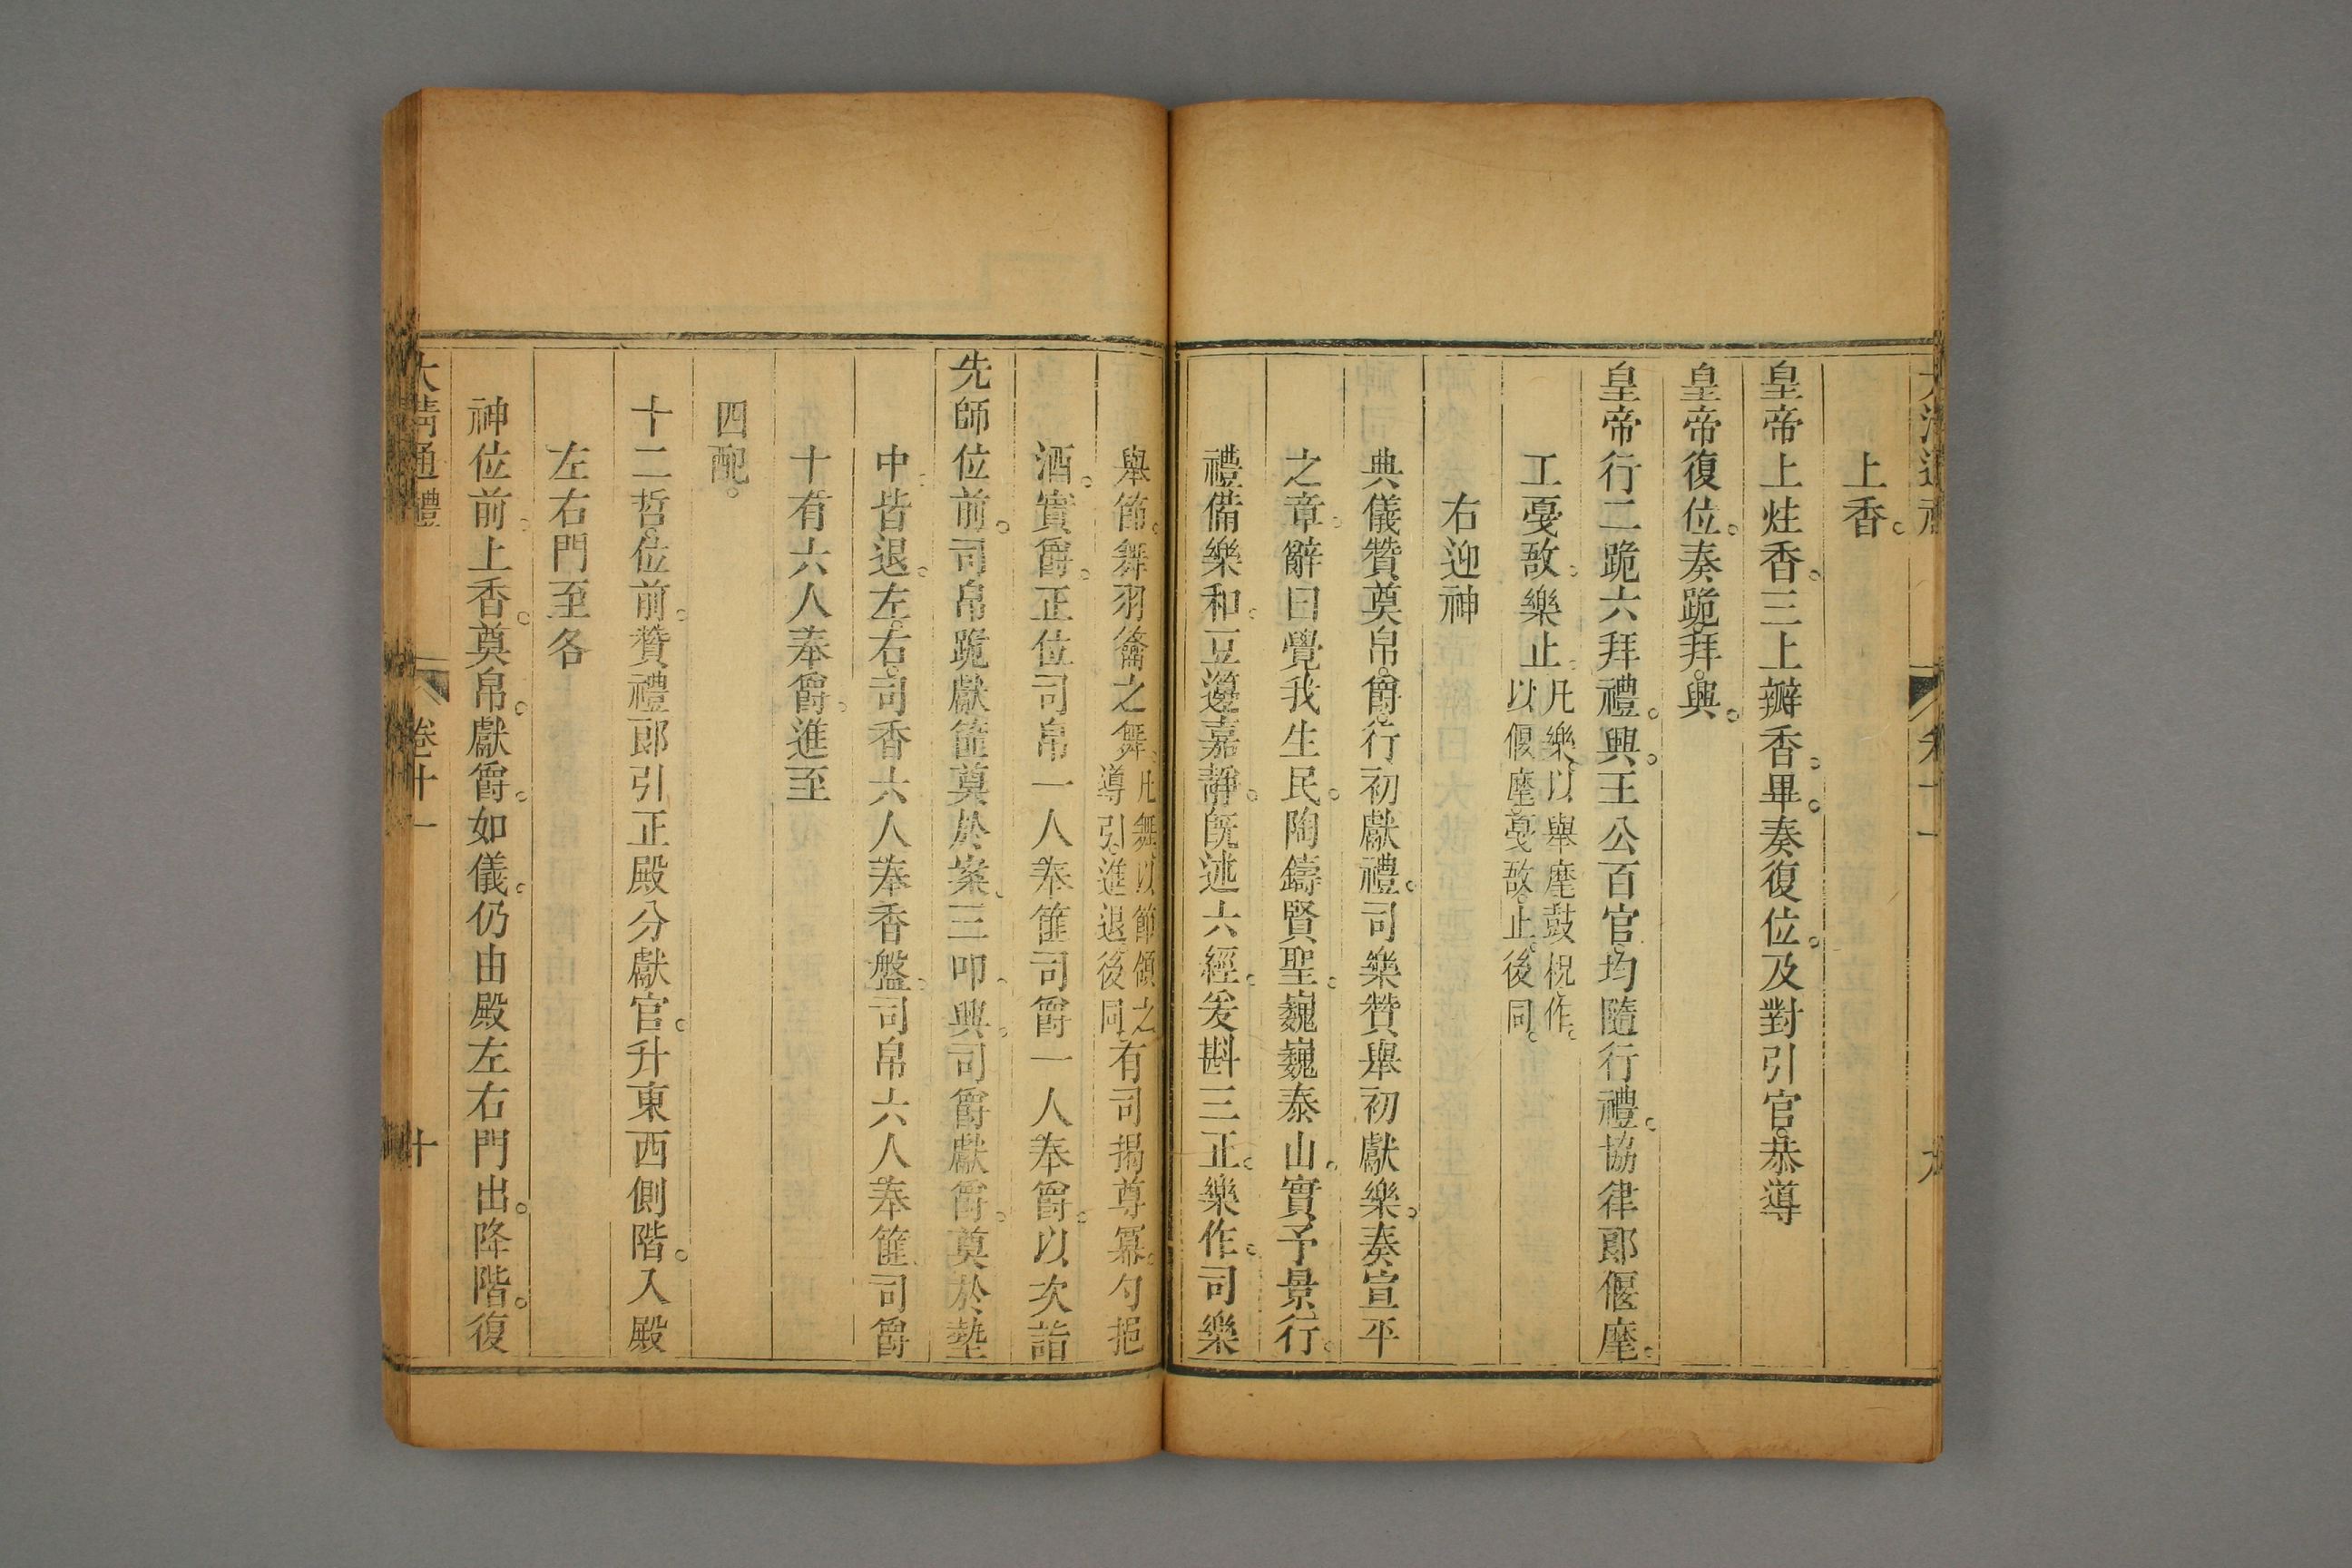 大清通禮　卷十一　九
上香。
皇帝上炷香。三上瓣香。畢。奏復位。及對引官。恭導
皇帝復位。奏跪。拜。興。
皇帝行二跪六拜禮。興。王公百官。均隨行禮。協律郎偃麾。
工戛敔。樂止。凡樂。以舉麾鼓柷作。
以偃麾戛敔。止。後同。
右迎神
典儀贊奠帛。爵。行初獻禮。司樂贊舉初獻樂。奏宣平
之章。辭曰覺我生民。陶鑄賢聖。巍巍泰山。實予景行。
禮備樂和。豆籩嘉靜。旣述六經。爰斟三正。樂作。司樂
舉節。舞羽籥之舞。凡舞以節領之。
導引。進退後同。有司揭尊冪。勺挹
酒。實爵。正位司帛一人奉篚。司爵一人奉爵。以次詣
先師位前。司帛跪獻篚奠於案。三叩。興。司爵獻爵。奠於墊
中。皆退。左。右。司香六人奉香盤。司帛六人奉篚。司爵
十有六人奉爵。進至
四配。
十二哲。位前。贊禮郎引正殿分獻官。升東西側階。入殿
左右門至各
神位前。上香。奠帛。獻爵。如儀。仍由殿左右門出。降階。復
大清通禮　卷十一　十